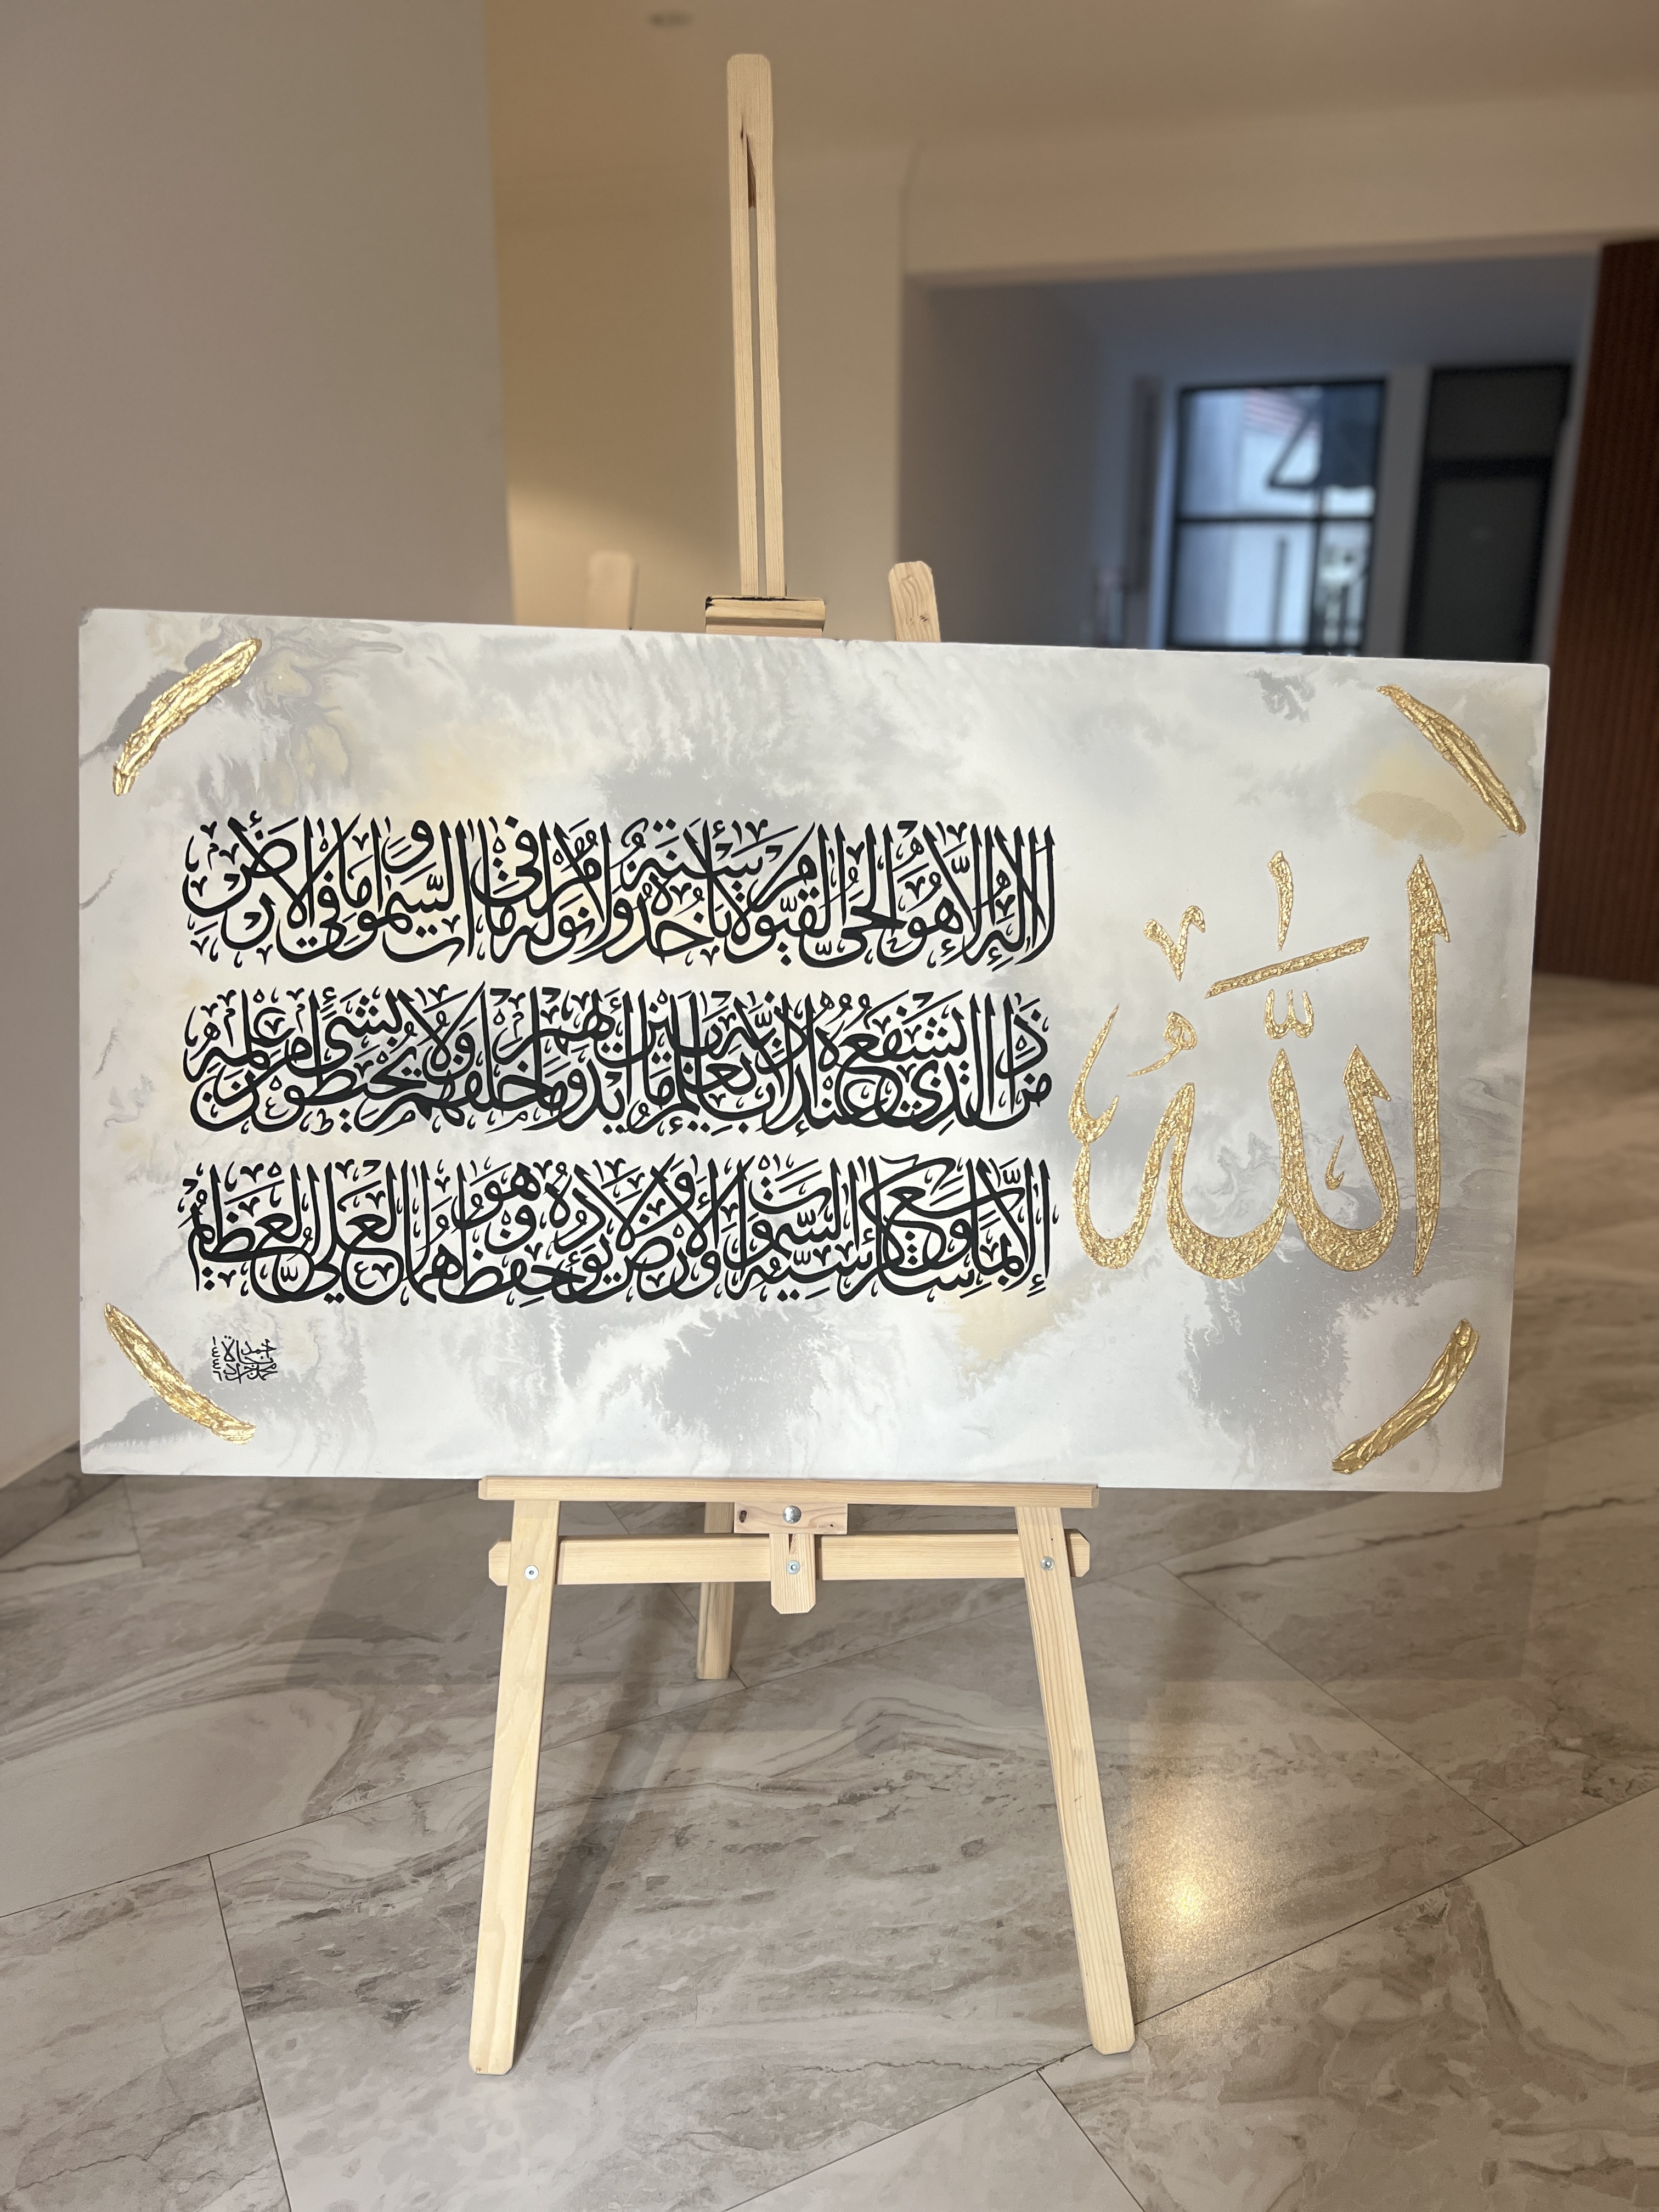 اللَّهُ
لَا إِلَٰهَ إِلَّا هُوَ الْحَيُّ الْقَيُّومُ لَا تَأْخُذُهُ سِنَةٌ وَلَا نَوْمٌ لَهُ مَا فِي السَّمَٰوَاتِ وَمَا فِي الْأَرْضِ
مَنْ ذَا الَّذِي يَشْفَعُ عِنْدَهُ إِلَّا بِإِذْنِهِ يَعْلَمُ مَا بَيْنَ أَيْدِيهِمْ وَمَا خَلْفَهُمْ وَلَا يُحِيطُونَ بِشَيْءٍ مِنْ عِلْمِهِ
إِلَّا بِمَا شَاءَ وَسِعَ كُرْسِيُّهُ السَّمَٰوَاتِ وَالْأَرْضَ وَلَا يَئُودُهُ حِفْظُهُمَا وَهُوَ الْعَلِيُّ الْعَظِيمُ